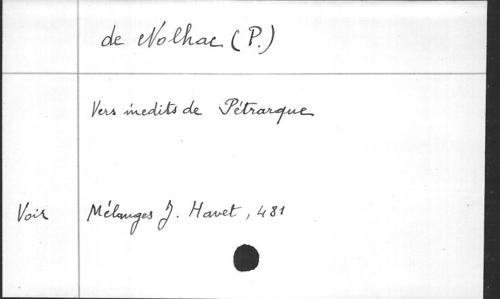 de Nolhac (P.)
Vers inedits de Pétrarque
Voir Mélanges J. Havet, 481